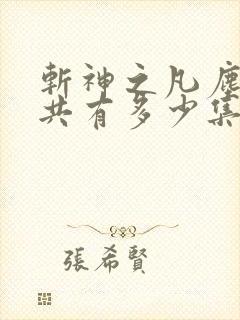 斬神之凡塵
共有多少集
張希賢